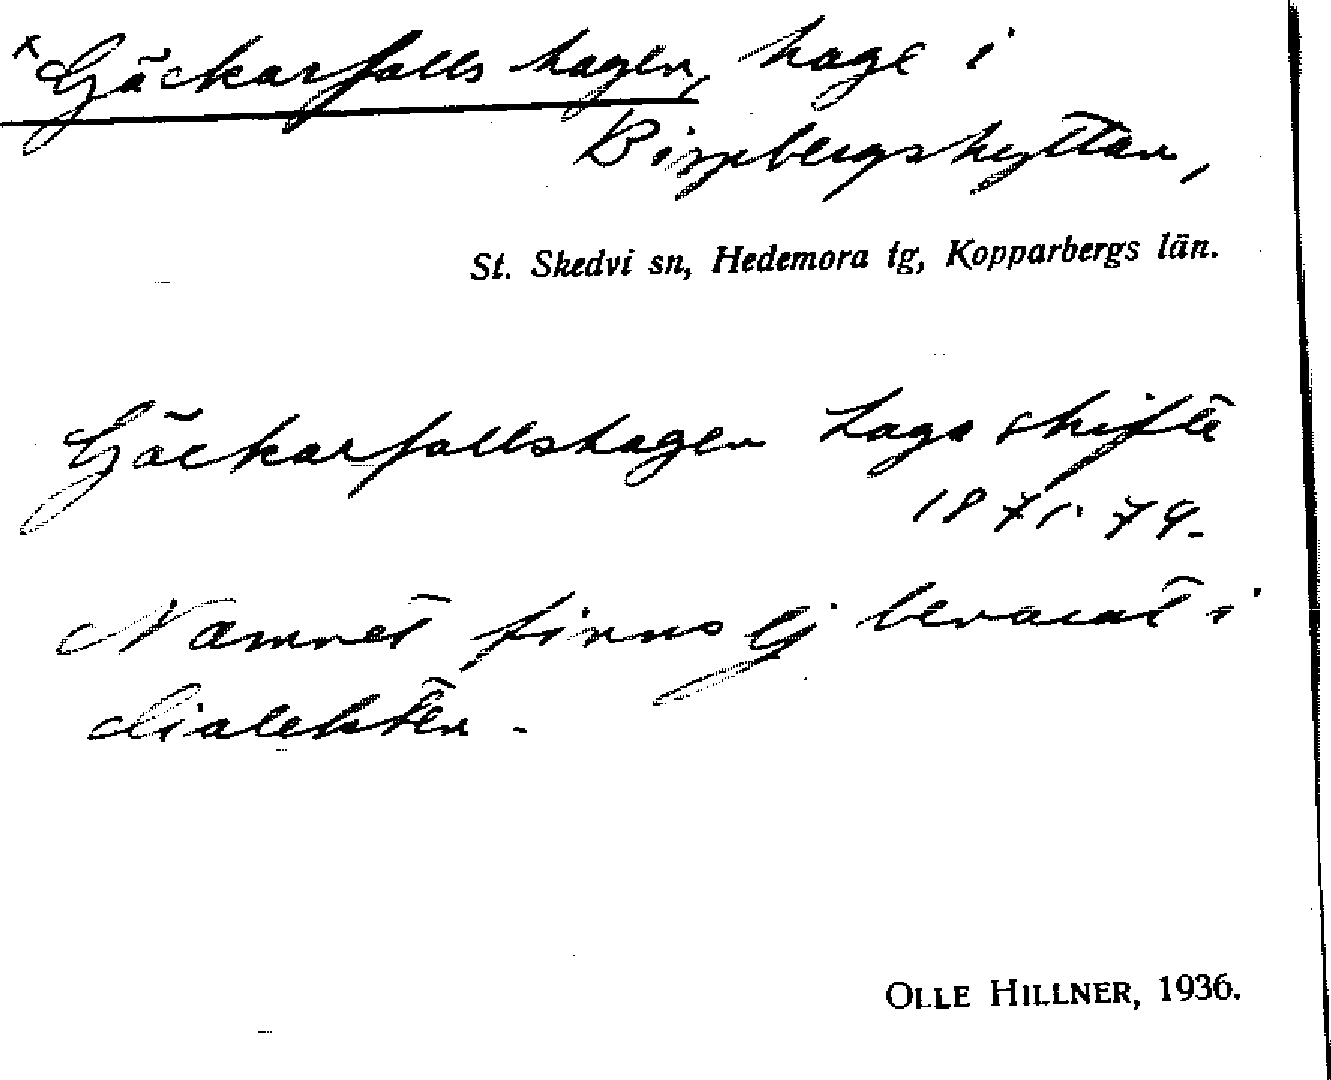 × Gäckarfallshagen, hage i
Bispbergshyttan,
St. Skedvi sn, Hedemora tg, Kopparbergs län.
Gäckarfallshagen Laga skifte
1871-79.
Namnet finns ej bevarat i
dialekten.
OLLE HILLNER, 1936.